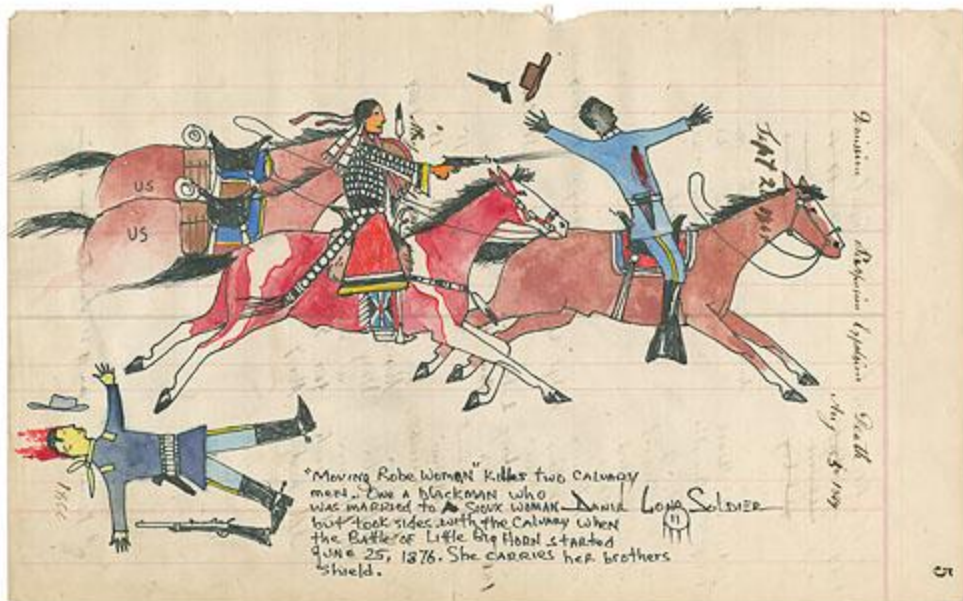 US
US
Sept 2
"Moving Robe Woman" Kills two Calvary
men. One a blackman who
was married to A Sioux woman
but took sides with the Calvary when
the Battle of Little Big Horn started
June 25, 1876. She carries her brothers
shield.
Daniel Long Soldier
Expedition
Death
Aug 5
5